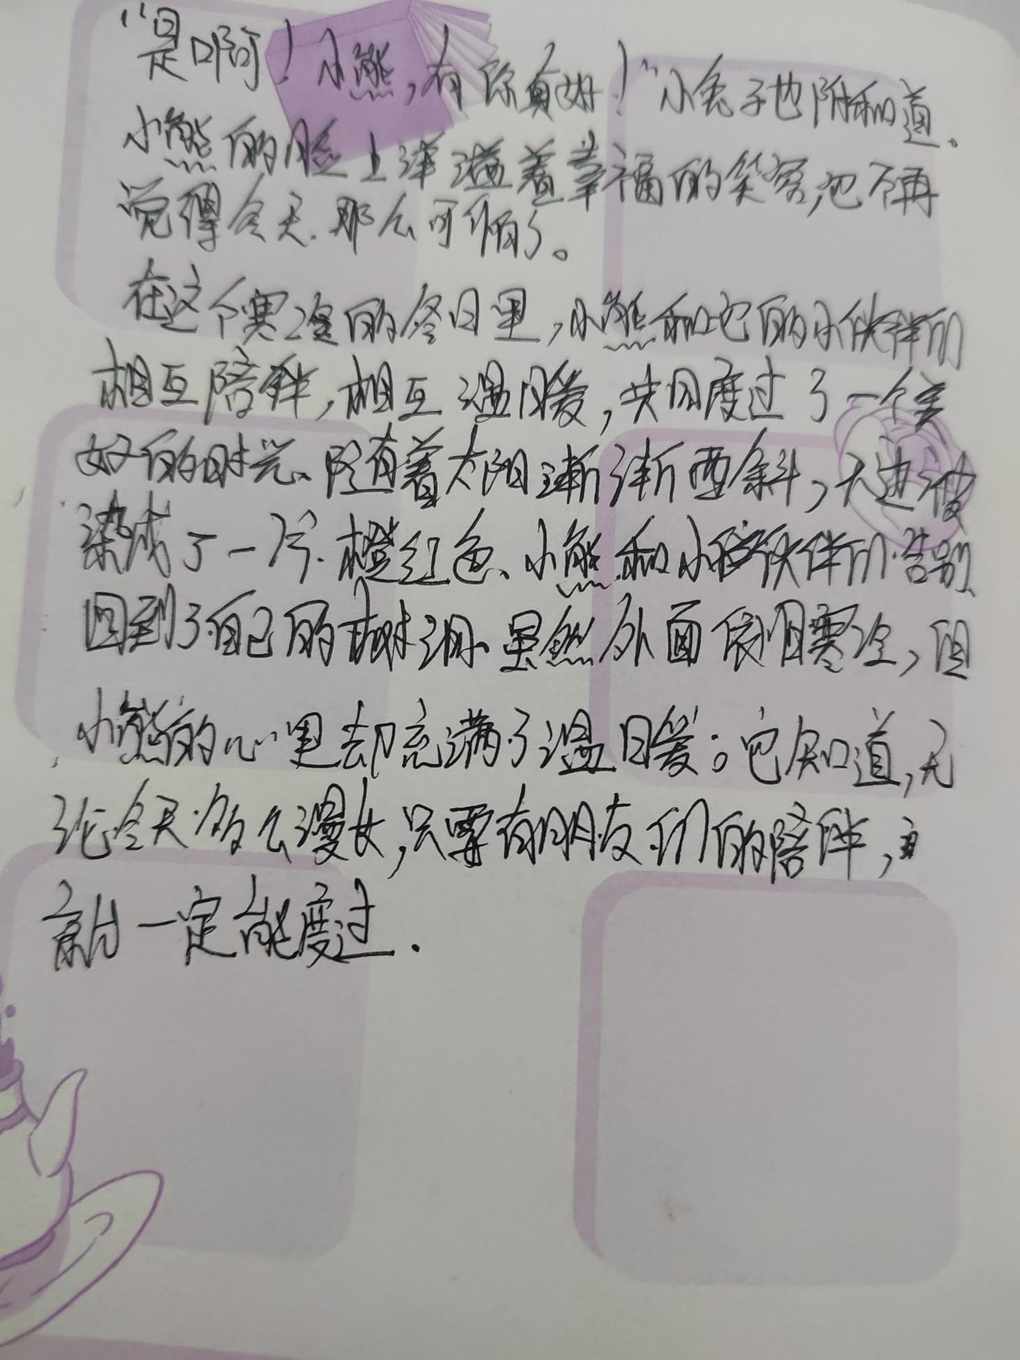 “是啊！小熊，有你真好！”小兔子也附和道。
小熊的脸上洋溢着幸福的笑容，也不再
觉得冬天那么可怕了。
在这个寒冷的冬日里，小熊和它的小伙伴们
相互陪伴，相互温暖，共同度过了一个美
好的时光。随着太阳渐渐西斜，天边被
染成了一片橙红色、小熊和小伙伴们告别
回到了自己的树洞。虽然外面依旧寒冷，但
小熊的心里却充满了温暖。它知道，无
论冬天多么漫长，只要有朋友们的陪伴，
就一定能度过.